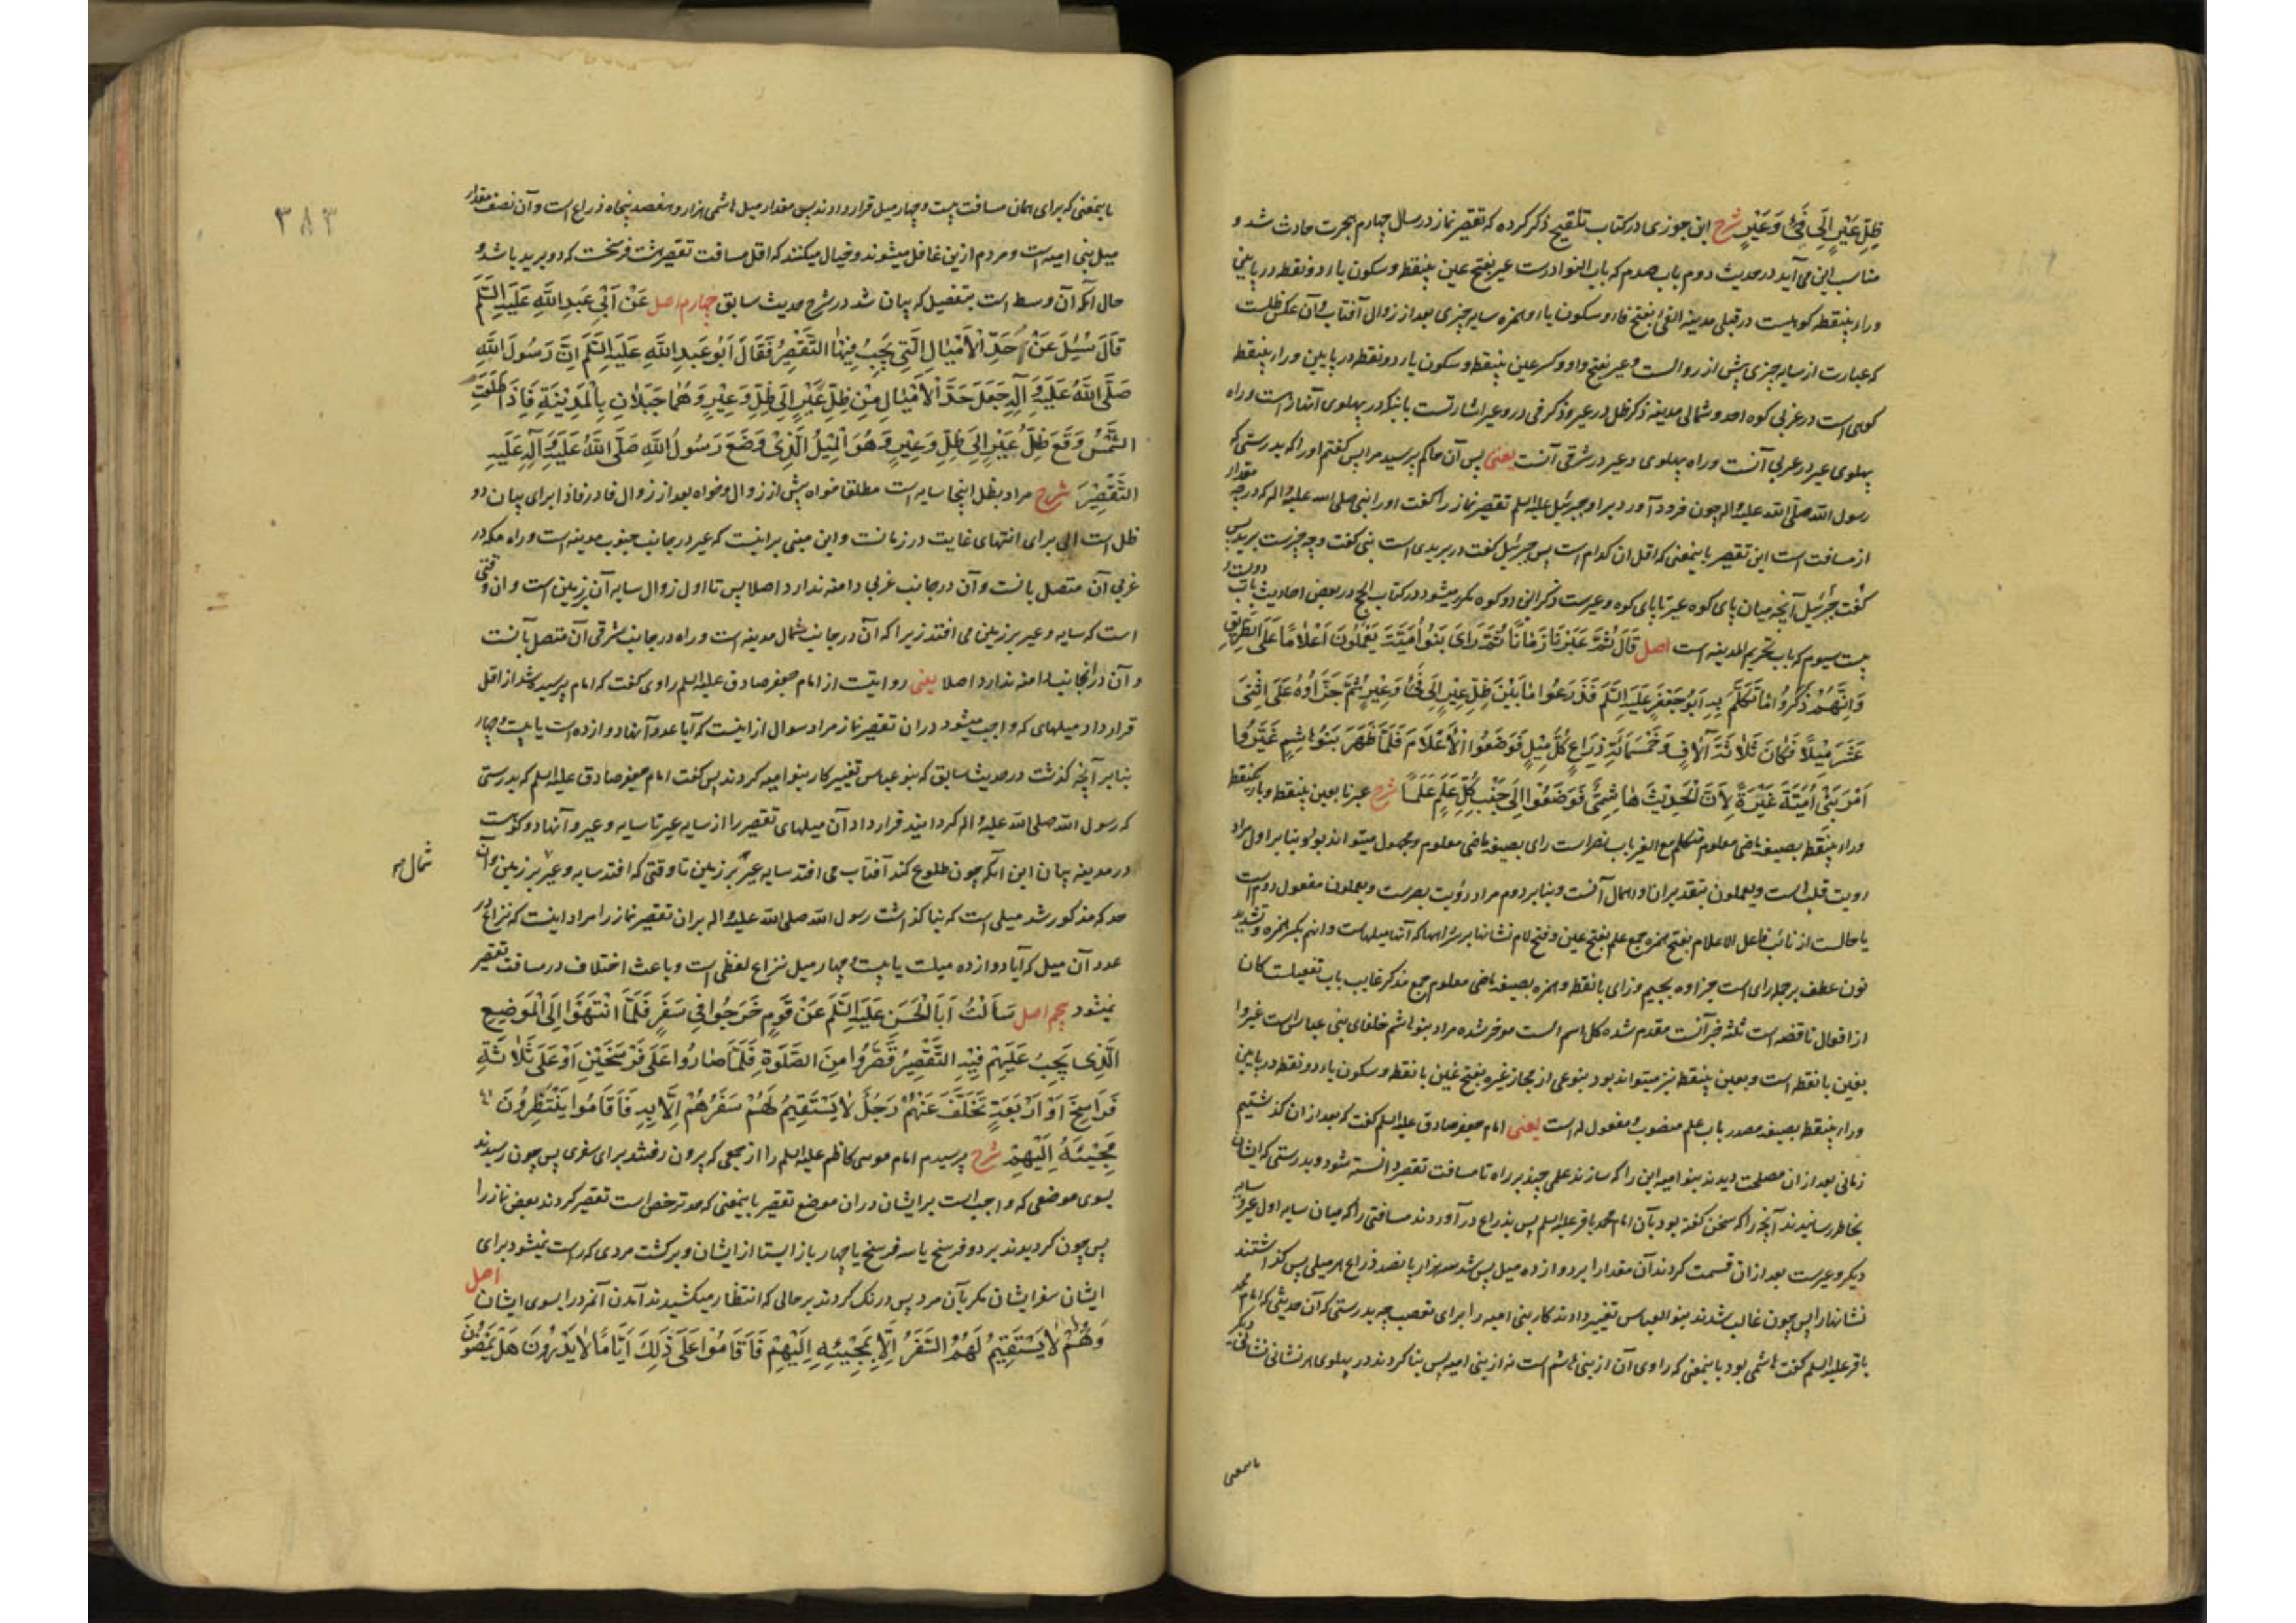 ظِلِّ عَيْرٍ إِلَى فَيْءِ وَعَيْرٍ شرح ابن جوزی در کتاب تلقیح ذکر کرده که تقصیر نماز در سال چهارم هجرت حادث شد و
مناسب این می آید در حدیث دوم باب صدم که باب النوادرست عیر بفتح عین بینقطه و سکون یاء دو نقطه در پایین
وراء بینقطه کوهیست در قبلی مدینه الفئ بفتح فاء و سکون یاء و همزه سایه چیزی بعد از زوال آفتاب و آن عکس ظلست
که عبارت از سایه چیزی پیش از زوالست وعیر بفتح واو و کسر عین بینقطه و سکون یاء دو نقطه در پایین و راء بینقطه
کوهی است در غربی کوه احد و شمالی مدینه ذکر ظل در عیر و ذکر فئ در وعیر اشارتست بانکه در پهلوی آنها راه است و راه
پهلوی عیر در غربی آنست و راه پهلوی وعیر در شرقی آنست یعنی پس آن حاکم پرسید مرا پس گفتم او را که بدرستی که
رسول الله صلی الله علیه واله چون فرود آورد برا و جبرئیل علیه السلم تقصیر نماز را گفت او را نبی صلی الله علیه واله که در چه مقدار
از مسافت است این تقصیر باینمعنی که اقل ان کدام است پس جبرئیل گفت در بریدی است نبی گفت و چه چیزست برید پس
گفت جبرئیل آنچه میان پای کوه عیر تا پای کوه وعیرست ذکر این دو کوه مکرر میشود در کتاب الحج در بعض احادیث باب
بیست سیوم که باب تحریم المدینه است اصل قَالَ ثُمَّ عَبَرْنَا زَمَانًا ثُمَّ رَأَىٰ بَنُو أُمَيَّةَ يَعْمَلُونَ أَعْلَامًا عَلَى الطَّرِيقِ
وَإِنَّهُمْ ذَكَرُوا مَا تَكَلَّمَ بِهِ أَبُو جَعْفَرٍ عَلَيْهِ السَّلَمُ فَذَرَعُوا مَا بَيْنَ ظِلِّ عَيْرٍ إِلَى فَيْءِ وَعَيْرٍ ثُمَّ جَزَّأُوهُ عَلَى اثْنَىْ
عَشَرَ مِيْلًا فَكَانَ ثَلَاثَةَ آلَافٍ وَخَمْسَمِائَةِ ذِرَاعٍ كُلُّ مِيْلٍ فَوَضَعُوا الْأَعْلَامَ فَلَمَّا ظَهَرَ بَنُو هَاشِمٍ غَيَّرُوا
أَمْرَ بَنِي أُمَيَّةَ غَيْرَةً لِأَنَّ الْحَدِيثَ هَاشِمِيٌّ فَوَضَعُوا إِلَى جَنْبِ كُلِّ عَلَمٍ عَلَمًا شرح عبرنا بعین بینقطه و باء یکنقطه
وراء بینقطه بصیغه ماضی معلوم متکلم مع الغیر باب نصر است رای بصیغه ماضی معلوم و مجهول میتواند بود و بنا بر اول مراد
رویت قلب است و یعملون بتقدیر ان و اهمال آنست و بنا بر دوم مراد رؤیت بصرست و یعملون مفعول دوم است
یا حالست از نائب فاعل الاعلام بفتح همزه جمع علم بفتح عین و فتح لام نشانها بر سر راهها که آنها میلهاست وانهم بکسر همزه و تشدید
نون عطف بر جمله رای است جزاوه بجیم و زای بانقطه و همزه بصیغه ماضی معلوم جمع مذکر غایب باب تفعیلست کان
از افعال ناقصه است ثلثه خبر آنست مقدم شده کل اسم الست موخر شده مراد بنو هاشم خلفای بنی عباس است غیروا
بغین بانقطه است و بعین بینقطه نیز میتواند بود بنوعی از مجاز غیره بفتح غین بانقطه و سکون یاء دو نقطه در پایین
وراء بینقطه بصیغه مصدر باب علم منصوب و مفعول له است یعنی امام جعفر صادق علیه السلم گفت که بعد از ان گذشتیم
زمانی بعد از ان مصلحت دیدند بنو امیه این را که سازند علمی چند بر راه تا مسافت تقصیر دانسته شود و بدرستی که ایشان
بخاطر رسانیدند آنچه را که سخن گفته بود بآن امام محمد باقر علیه السلم پس بذراع در آوردند مسافتی را که میان سایه اول عیر و سایه
دیگر وعیرست بعد از ان قسمت کردند آن مقدار را بر دوازده میل پس شد سه هزار پانصد ذراع هر میلی پس گذاشتند
نشانها را پس چون غالب شدند بنو العباس تغییر دادند کار بنی امیه را برای تعصب چه بدرستی که آن حدیثی که امام محمد
باقر علیه السلم گفت هاشمی بود باینمعنی که راوی آن از بنی هاشم است نه از بنی امیه پس بنا کردند در پهلوی هر نشانی نشانی دیگر
باینمعنی
۳۸۳
باینمعنی که برای همان مسافت بیست و چهار میل قرار دادند پس مقدار میل هاشمی هزار و هفصد پنجاه ذراع است و آن نصف مقدار
میل بنی امیه است و مردم ازین غافل میشوند و خیال میکنند که اقل مسافت تقصیر هشت فرسخست که دو برید باشد و
حال آنکه آن وسط است بتفصیلی که بیان شد در شرح حدیث سابق چهارم اصل عَنْ أَبِي عَبْدِ اللَّهِ عَلَيْهِ السَّلَمُ
قَالَ سُئِلَ عَنْ حَدِّ الْأَمْيَالِ الَّتِي يَجِبُ فِيهَا التَّقْصِيرُ فَقَالَ أَبُو عَبْدِ اللَّهِ عَلَيْهِ السَّلَمُ إِنَّ رَسُولَ اللَّهِ
صَلَّى اللَّهُ عَلَيْهِ وَآلِهِ جَعَلَ حَدَّ الْأَمْيَالِ مِنْ ظِلِّ عَيْرٍ إِلَى ظِلِّ وَعَيْرٍ وَهُمَا جَبَلَانِ بِالْمَدِينَةِ فَإِذَا طَلَعَتِ
الشَّمْسُ وَقَعَ ظِلُّ عَيْرٍ إِلَى ظِلِّ وَعَيْرٍ وَهُوَ الْمِيْلُ الَّذِي وَضَعَ رَسُولُ اللَّهِ صَلَّى اللَّهُ عَلَيْهِ وَآلِهِ عَلَيْهِ
التَّقْصِيْرَ شرح مراد بظل اینجا سایه است مطلقا خواه پیش از زوال و خواه بعد از زوال فاء در فاذا برای بیان دو
ظل است الی برای انتهای غایت در زمانست و این مبنی بر اینست که عیر در جانب جنوب مدینه است و راه مکه در
غربی آن متصل بآنست و آن در جانب غربی دامنه ندارد اصلا پس تا اول زوال سایه آن بر زمین است و ان وقتی
است که سایه وعیر بر زمین می افتد زیرا که آن در جانب شمال مدینه است و راه در جانب شرقی آن متصل بآنست
و آن در انجانب دامنه ندارد اصلا یعنی روایتست از امام جعفر صادق علیه السلم راوی گفت که امام پرسیده شد از اقل
قرار داد میلهای که واجب میشود در ان تقصیر نماز مراد سوال از اینست که آیا عدد آنها دوازده است یا بیست و چهار
بنا بر آنچه گذشت در حدیث سابق که بنو عباس تغییر کار بنو امیه کردند پس گفت امام جعفر صادق علیه السلم که بدرستی
که رسول الله صلی الله علیه واله گردانید قرار داد آن میلهای تقصیر را از سایه عیر تا سایه وعیر و آنها دو کوهست
در مدینه بیان این آنکه چون طلوع کند آفتاب می افتد سایه عیر بر زمین تا وقتی که افتد سایه وعیر بر زمین و آن
شمال
حد که مذکور شد میلی است که بنا گذاشت رسول الله صلی الله علیه واله بران تقصیر نماز را مراد اینست که نزاع در
عدد آن میل که آیا دوازده میلست یا بیست و چهار میل نزاع لفظی است و باعث اختلاف در مسافت تقصیر
نمیشود پنجم اصل سَأَلْتُ أَبَا الْحَسَنِ عَلَيْهِ السَّلَمُ عَنْ قَوْمٍ خَرَجُوا فِي سَفَرٍ فَلَمَّا انْتَهَوْا إِلَى الْمَوْضِعِ
الَّذِي يَجِبُ عَلَيْهِمْ فِيْهِ التَّقْصِيْرُ قَصَّرُوا مِنَ الصَّلٰوةِ فَلَمَّا صَارُوا عَلَى فَرْسَخَيْنِ أَوْ عَلَى ثَلَاثَةِ
فَرَاسِخَ أَوْ أَرْبَعَةٍ تَخَلَّفَ عَنْهُمْ رَجُلٌ لَا يَسْتَقِيْمُ لَهُمْ سَفَرُهُمْ إِلَّا بِهِ فَأَقَامُوا يَنْتَظِرُونَ
مَجِيْئَهُ إِلَيْهِمْ شرح پرسیدم امام موسی کاظم علیه السلم را از جمعی که بیرون رفتند برای سفری پس چون رسیدند
بسوی موضعی که واجب است بر ایشان در ان موضع تقصیر باینمعنی که حد ترخص است تقصیر کردند بعض نماز را
پس چون گردیدند بر دو فرسخ یا سه فرسخ یا چهار باز ایستاد از ایشان و برگشت مردی که راست نمیشود برای
ایشان سفر ایشان مگر بآن مرد پس درنگ کردند بر حالی که انتظار میکشیدند آمدن آنمرد را بسوی ایشان اصل
وَهُمْ لَا يَسْتَقِيْمُ لَهُمُ السَّفَرُ إِلَّا بِمَجِيْئِهِ إِلَيْهِمْ فَأَقَامُوا عَلَى ذٰلِكَ أَيَّامًا لَا يَدْرُونَ هَلْ يَمْضُوْنَ